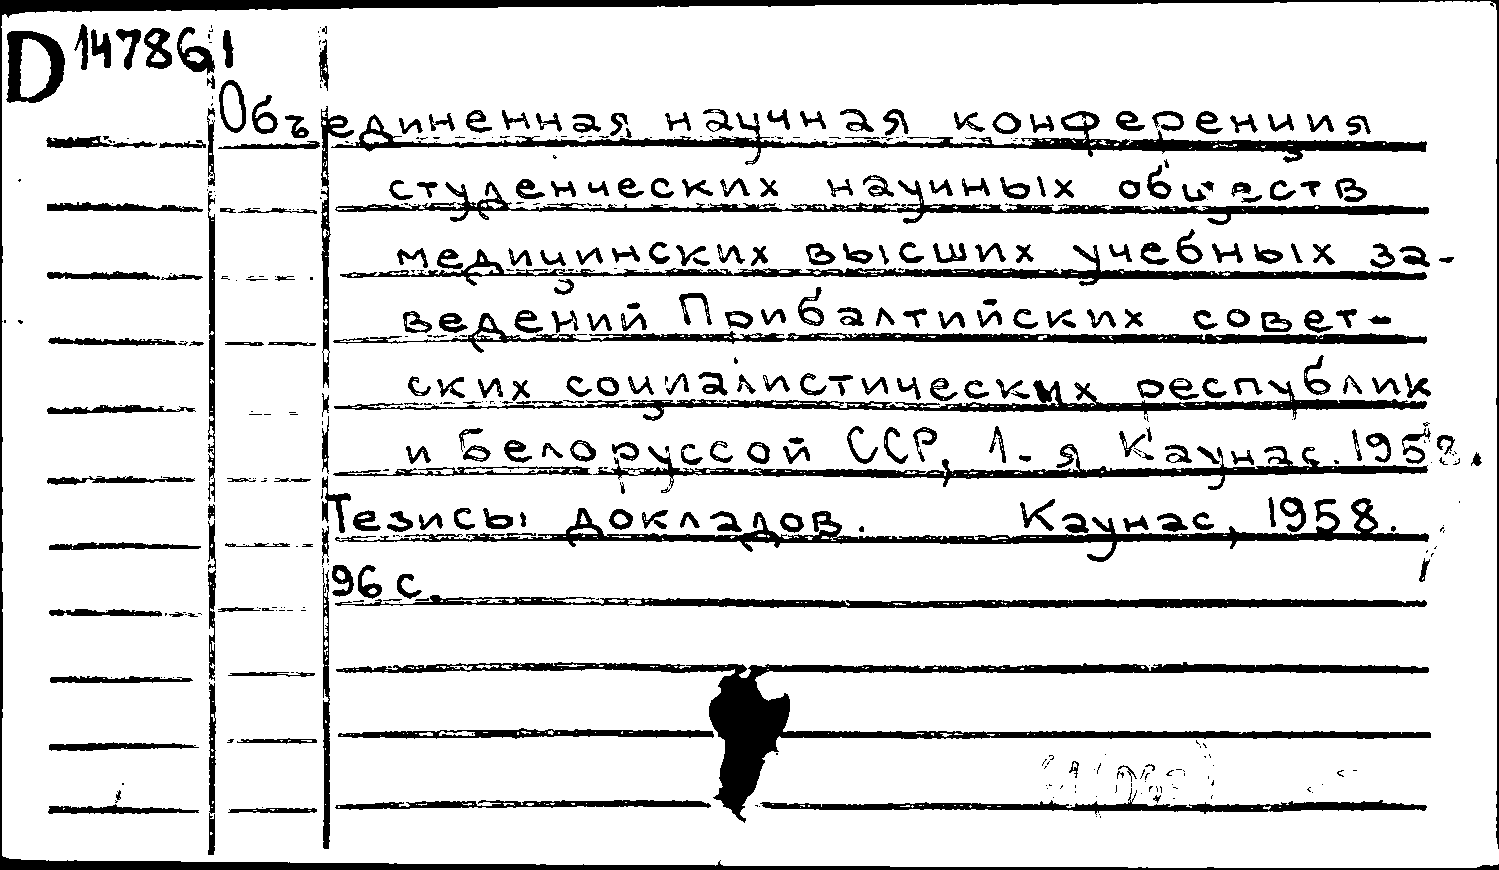 D 147861
Объединенная научная конференция
студенческих научных обществ
медицинских высших учебных за-
ведений Прибалтийских совет-
ских социалистических республик
и Белорусской ССР, 1-я Каунас. 1958.
Тезисы докладов. Каунас, 1958.
96 с.